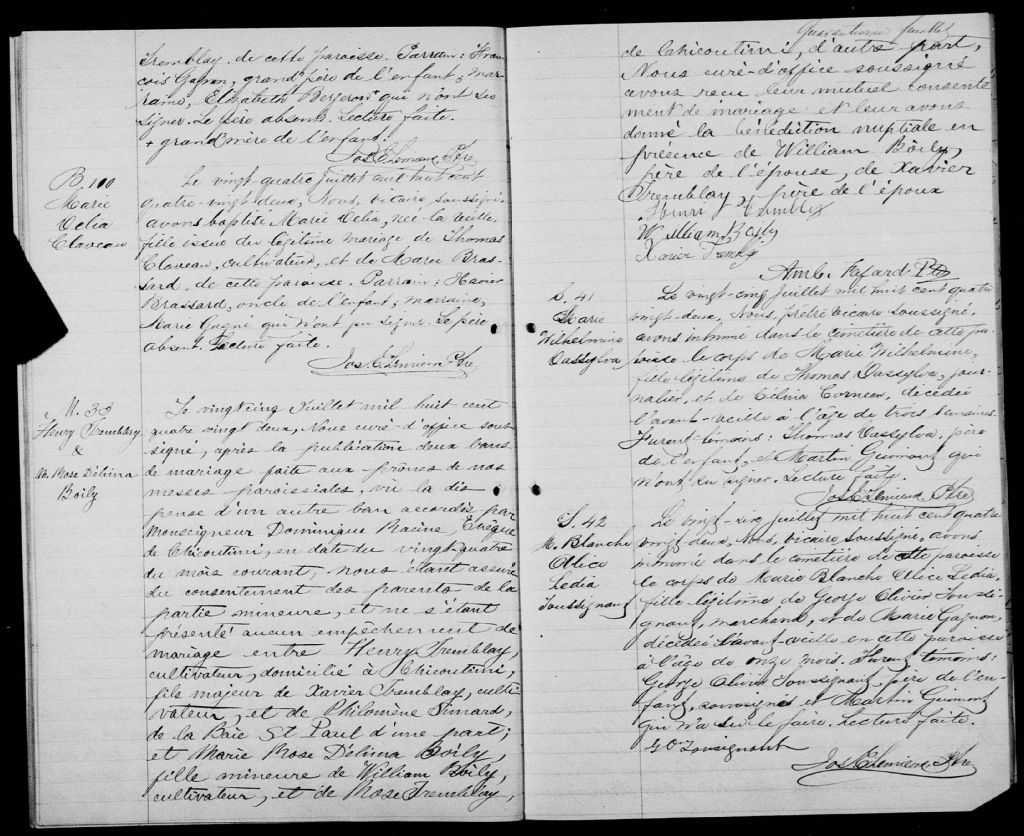 Tremblay de cette paroisse. Parrain: Fran-
cois Gagnon, grand père de l'enfant; mar-
raine, Elizabeth Bergeron+ qui n'ont su
signer. Le père absent. Lecture faite.
+ grand mère de l'enfant.
Jos E Lemieux Ptre
B. 100
Marie
Delia
Claveau
Le vingt quatre Juillet mil huit cent
quatre-vingt deux, Nous, vicaire, soussigné
avons baptisé Marie Delia, née la veille
fille issue du légitime mariage de Thomas
Claveau, cultivateur, et de Marie Bras-
sard, de cette paroisse. Parrain: Xavier
Brassard, oncle de l'enfant; marraine,
Marie Gagné qui n'ont pu signer. Le père
absent. Lecture faite.
Jos E Lemieux Ptre
M. 33
Henry Tremblay
&
M. Rose Délima
Boily
Le vingt cinq Juillet mil huit cent
quatre vingt deux, Nous curé d'office sous-
signé, après la publication deux bans
de mariage faite aux prônes de nos
messes paroissiales, vu la dis
pense d'un autre ban accordée par
Monseigneur Dominique Racine Evêque
de Chicoutimi, en date du vingt-quatre
du mois courant, nous étant assuré
du consentement des parents de la
partie mineure, et ne s'étant
présenté aucun empêchement de
mariage entre Henry Tremblay,
cultivateur, domicilié à Chicoutimi,
fils majeur de Xavier Tremblay, culti
vateur, et de Philomène Simard,
de la Baie St Paul d'une part;
et Marie Rose Délima Boily,
fille mineure de William Boily,
cultivateur, et de Rose Tremblay,
feuillet
de Chicoutimi, d'autre part,
Nous curé-d'office soussigné
avons reçu leur mutuel consente
ment de mariage et leur avons
donné la bénédiction nuptiale en
présence de William Boily
père de l'épouse, de Xavier
Tremblay, père de l'époux
Henri Trembley
William Boily
Xavier Trembly
Amb. Fafard Ptre
S. 41
Marie
Wilhelmine
Dassylva
Le vingt-cinq Juillet mil huit cent quatre
vingt-deux, Nous, prêtre vicaire soussigné,
avons inhumé dans le cimetière de cette pa-
roisse le corps de Marie Wilhelmine,
fille légitime de Thomas Dassylva, jour-
nalier, et de Célina Corneau, décédée
l'avant-veille à l'âge de trois semaines
Furent témoins: Thomas Dassylva, père
de l'enfant, et Martin Guimont qui
n'ont su signer. Lecture faite.
Jos E Lemieux Ptre
S. 42
M. Blanche
Alice
Ledia
Toussignant
Le vingt-six Juillet mil huit cent quatre
vingt deux, Nous, vicaire soussigné, avons
inhumé dans le cimetière de cette paroisse
le corps de Marie Blanche Alice Ledia,
fille légitime de George Olivier Toussi-
gnant, marchand, et de Marie Gagnon,
décédée l'avant-veille en cette paroisse
à l'âge de onze mois. Furent témoins:
George Olivier Toussignant père de l'en-
fant, soussigné et Martin Guimont
qui n'a su le faire. Lecture faite.
G Oner Tousignant
Jos E Lemieux Ptre